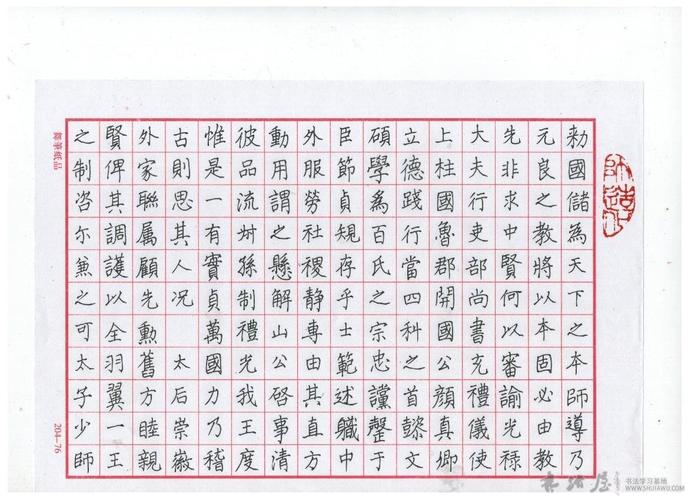 勑國儲為天下之本師導乃
元良之教將以本固必由教
先非求中賢何以審諭光祿
大夫行吏部尚書充禮儀使
上柱國魯郡開國公顏真卿
立德踐行當四科之首懿文
碩學為百氏之宗忠讜罄于
臣節貞規存乎士範述職中
外服勞社稷靜專由其直方
動用謂之懸解山公啓事清
彼品流叔孫制禮光我王度
惟是一有實貞萬國力乃稽
古則思其人況 太后崇徽
外家聯属顧先勲舊方睦親
賢俾其調護以全羽翼一王
之制咨尔兼之可太子少師
師造化
204-76
书法屋
书法学习基地
WWW.SHUFAWU.COM